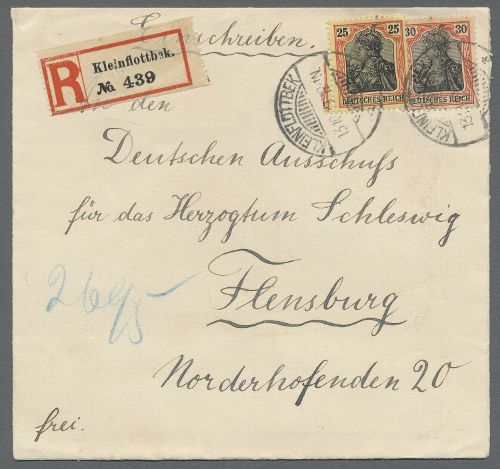 Einschreiben.
R
Kleinflottbek.
No. 439
25 25
DEUTSCHES REICH
30 30
DEUTSCHES REICH
KLEINFLOTTBEK
KLEINF
den
Deutschen Ausschuß
für das Herzogtum Schleswig
Flensburg
Norderhofenden 20
frei.